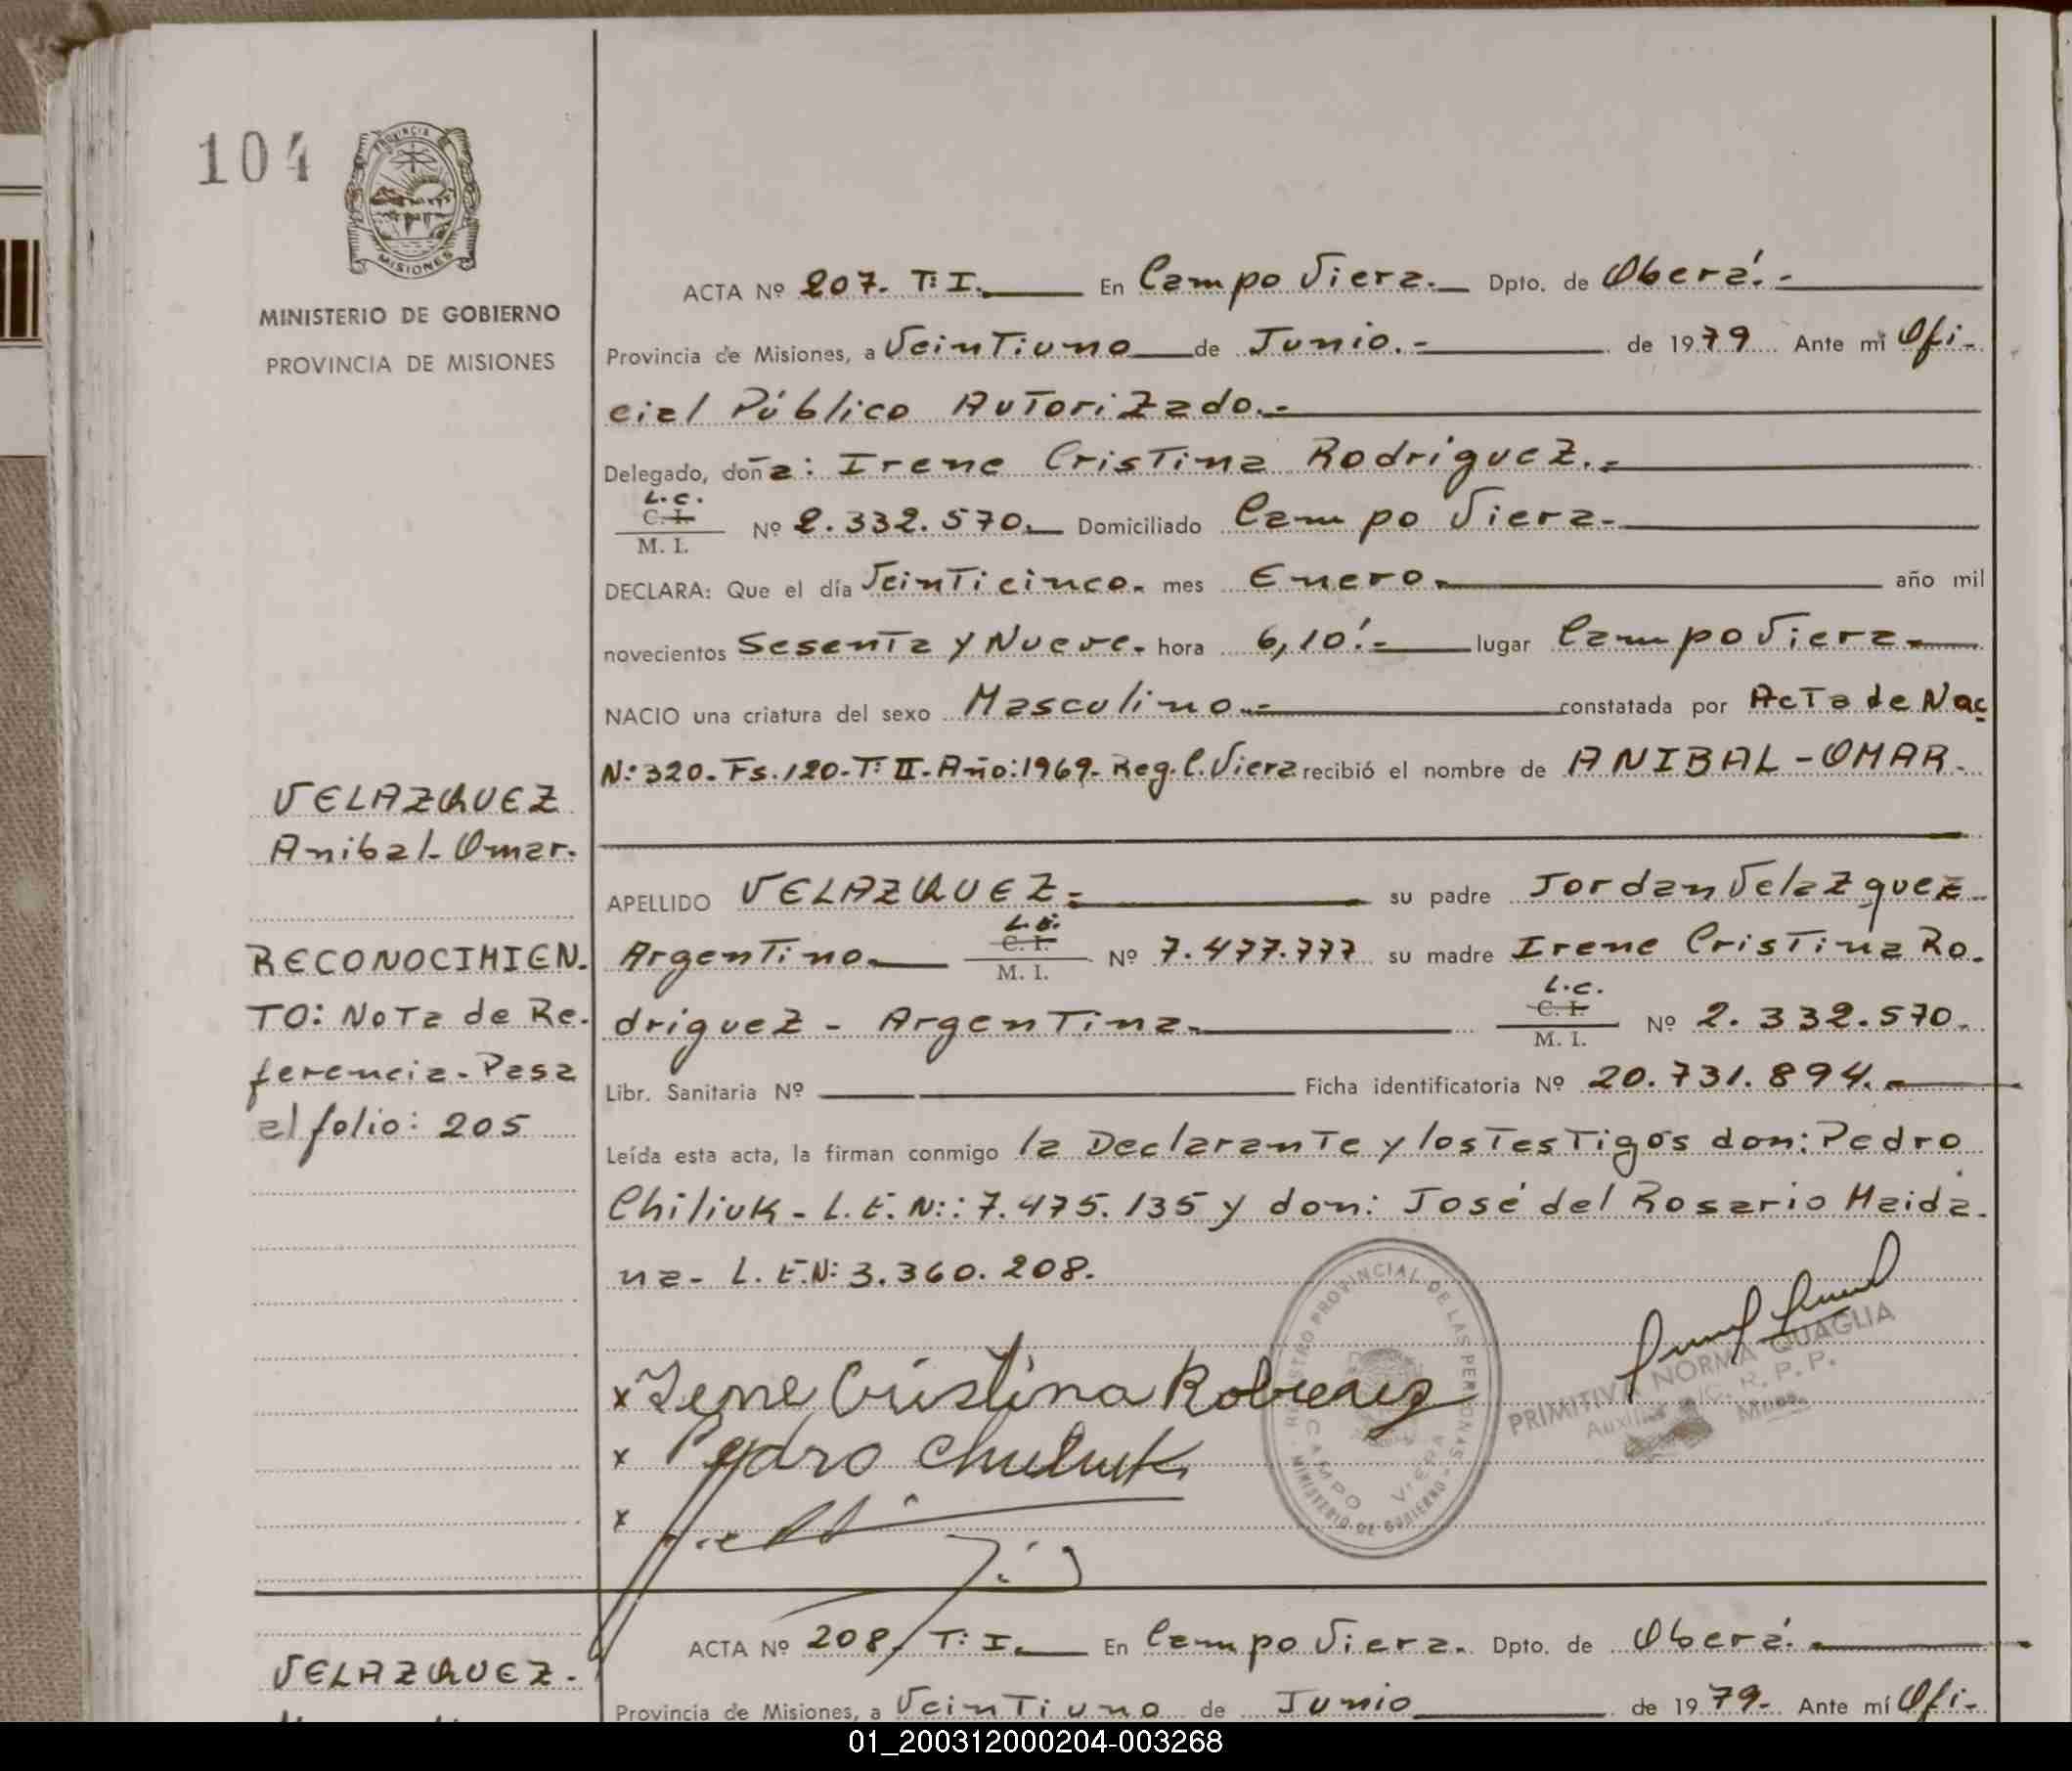 104
PROVINCIA
MISIONES
MINISTERIO DE GOBIERNO
PROVINCIA DE MISIONES
ACTA Nº 207. T: I. En Campo Viera. Dpto. de Oberá.-
Provincia de Misiones, a Veintiuno de Junio.- de 1979 Ante mí Ofi-
cial Público Autorizado.-
Delegado, doña: Irene Cristina Rodriguez.-
L.C.
C. I.
M. I.
Nº 2.332.570. Domiciliado Campo Viera-
DECLARA: Que el día Veinticinco. mes Enero. año mil
novecientos Sesenta y Nueve. hora 6,10'.- lugar Campo Viera.
NACIO una criatura del sexo Masculino.- constatada por Acta de Nac
N: 320. Fs. 120-T: II. Año: 1969. Reg. C. Viera recibió el nombre de ANIBAL-OMAR.
VELAZQUEZ
Anibal-Omar.
APELLIDO VELAZQUEZ.- su padre Jordan Velazquez
RECONOCIMIEN.
TO: Nota de Re.
ferencia. Pasa
al folio: 205
Argentino. L.E. C. I. M. I. Nº 7.477.777 su madre Irene Cristina Ro.
driguez - Argentina. L.C. C. I. M. I. Nº 2.332.570.
Libr. Sanitaria Nº Ficha identificatoria Nº 20.731.894.
Leída esta acta, la firman conmigo la Declarante y los Testigos don: Pedro
Chiliuk - L.E.N:: 7.475.135 y don: José del Rosario Maida.
na- L.E.N: 3.360.208.
REGISTRO PROVINCIAL DE LAS PERSONAS
MINISTERIO DE GOBIERNO
CAMPO VIERA
PRIMITIVA NORMA QUAGLIA
R. P. P.
x Irene Cristina
x Pedro
x
ACTA Nº 208. T: I. En Campo Viera. Dpto. de Oberá.
VELAZQUEZ.
Provincia de Misiones, a Veintiuno de Junio de 1979. Ante mí Ofi-
01_200312000204-003268